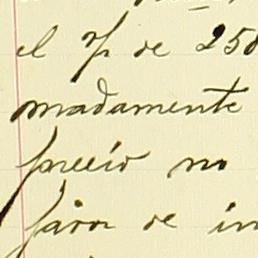 el % de 250
madamente
precio no
favor de in